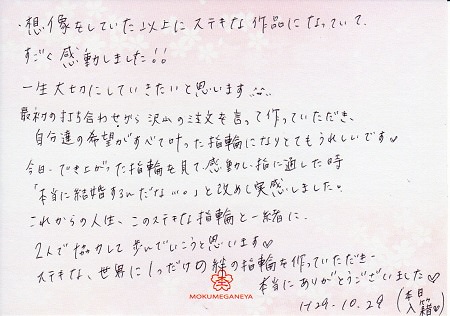 ・想像をしていた以上にステキな作品になっていて、
すごく感動しました!!
一生大切にしていきたいと思います...
最初の打ち合わせから沢山の注文を言って作っていただき、
自分達の希望がすべて叶った指輪になりとてもうれしいです♡
今日、でき上がった指輪を見て、感動し、指に通した時
「本当に結婚するんだな...。」と改めし実感しました。
これからの人生、このステキな指輪と一緒に、
2人で協力して歩んでいこうと思います♡
ステキな、世界に1つだけの絆の指輪を作っていただき、
本当にありがとうございました♡
H29.10.29 (本日入籍♡)
MOKUMEGANEYA